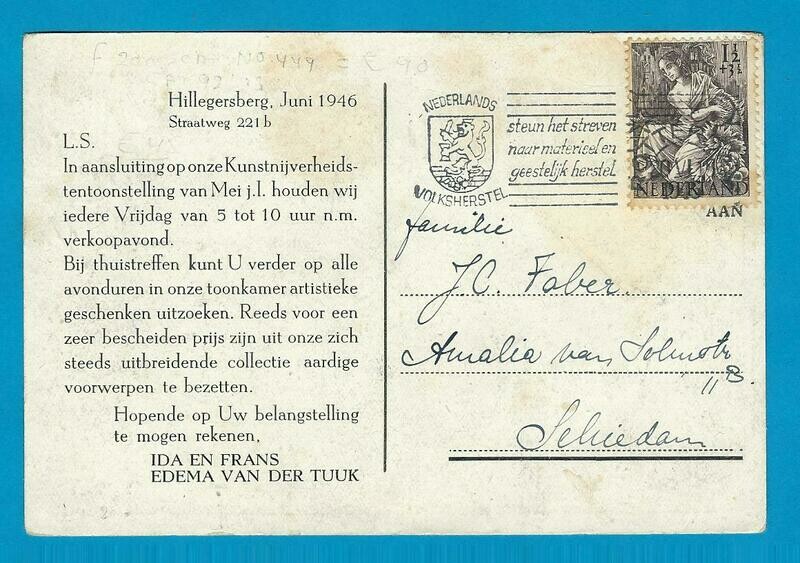 Hillegersberg, Juni 1946
Straatweg 221b
L.S.
In aansluiting op onze Kunstnijverheids-
tentoonstelling van Mei j.l. houden wij
iedere Vrijdag van 5 tot 10 uur n.m.
verkoopavond.
Bij thuistreffen kunt U verder op alle
avonduren in onze toonkamer artistieke
geschenken uitzoeken. Reeds voor een
zeer bescheiden prijs zijn uit onze zich
steeds uitbreidende collectie aardige
voorwerpen te bezetten.
Hopende op Uw belangstelling
te mogen rekenen,
IDA EN FRANS
EDEMA VAN DER TUUK
NEDERLANDS
VOLKSHERSTEL
steun het streven
naar materieel en
geestelijk herstel
1½
+3½
NEDERLAND
AAN
familie
J.C. Faber.
Amalia van Solmstr
11 B.
Schiedam